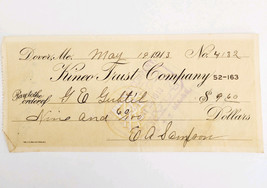 Dover, Me. May 19 1913 No. 4132
Kineo Trust Company 52-163
Pay to the order of G E Guptil $ 9.60
Nine and 60/100 Dollars
E A Sampson